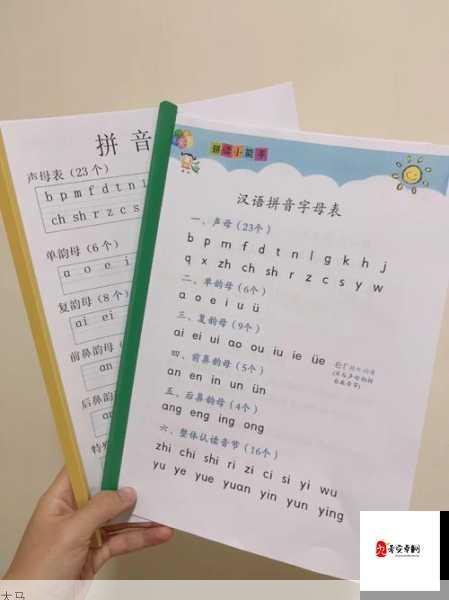 拼音
声母表（23个）
b p m f d t n l
ch sh r z c s
单韵母（6个）
a o e i
复韵母（8个）
ai ei
前鼻韵母
an
后鼻韵母
an
拼读小能手
汉语拼音字母表
一、声母（23个）
b p m f d t n l g k h j
q x zh ch sh r z c s y w
二、单韵母（6个）
a o e i u ü
三、复韵母（9个）
ai ei ui ao ou iu ie üe
四、前鼻韵母（5个）
an en in un ün
五、后鼻韵母（4个）
ang eng ing ong
六、整体认读音节（16个）
zhi chi shi ri zi ci si yi wu
yu ye yue yuan yin yun ying
大马